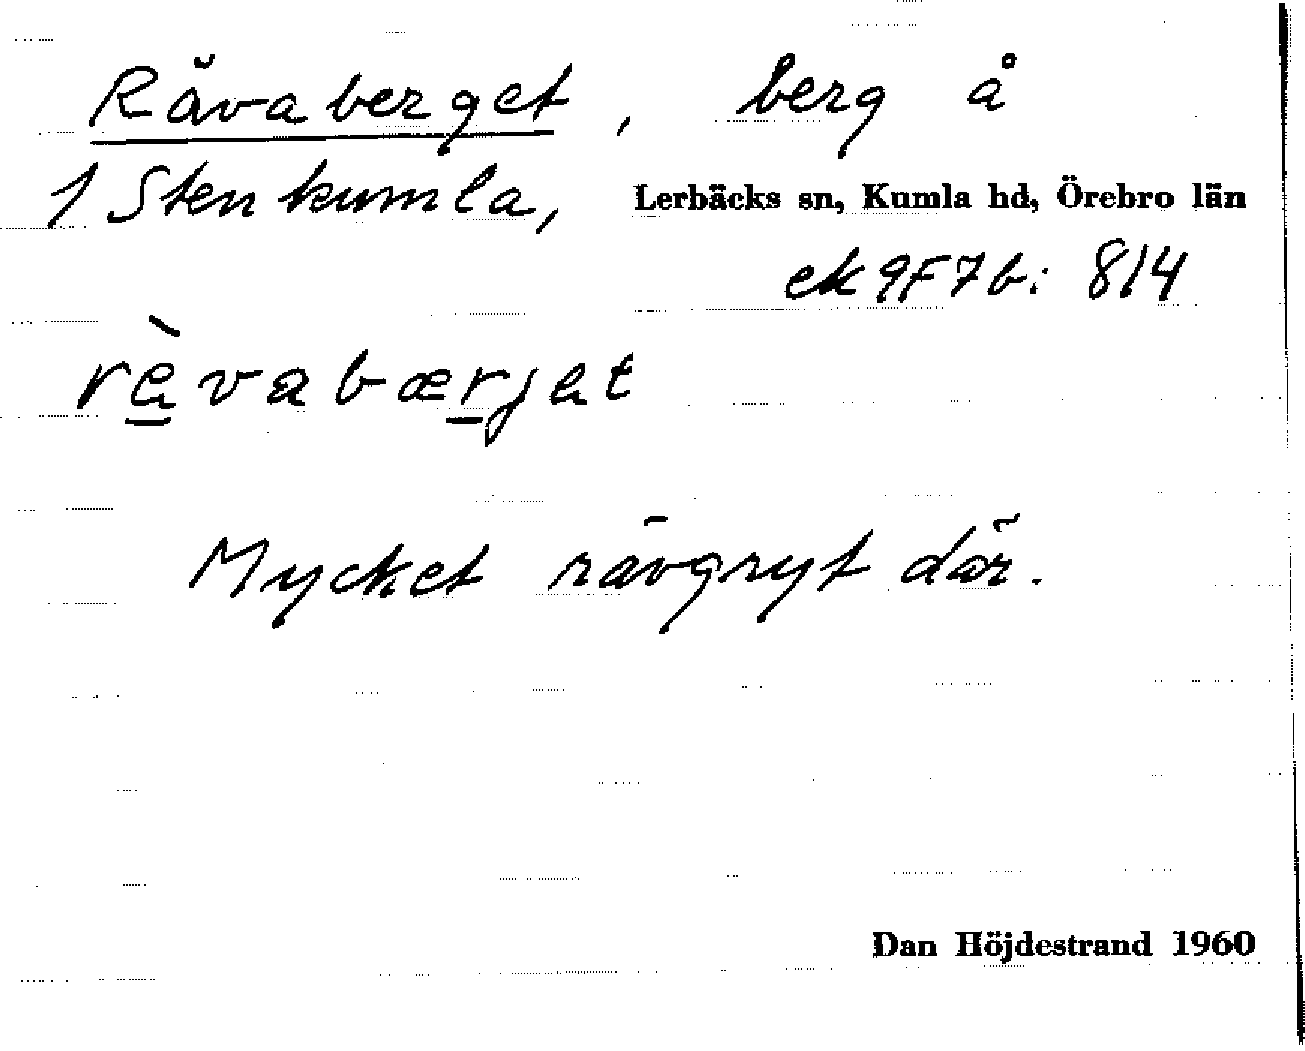 Rävaberget, berg å
1 Stenkumla, Lerbäcks sn, Kumla hd, Örebro län
ek 9F7b: 814
rè̱vabæ̱rjet
Mycket rävgryt där.
Dan Höjdestrand 1960